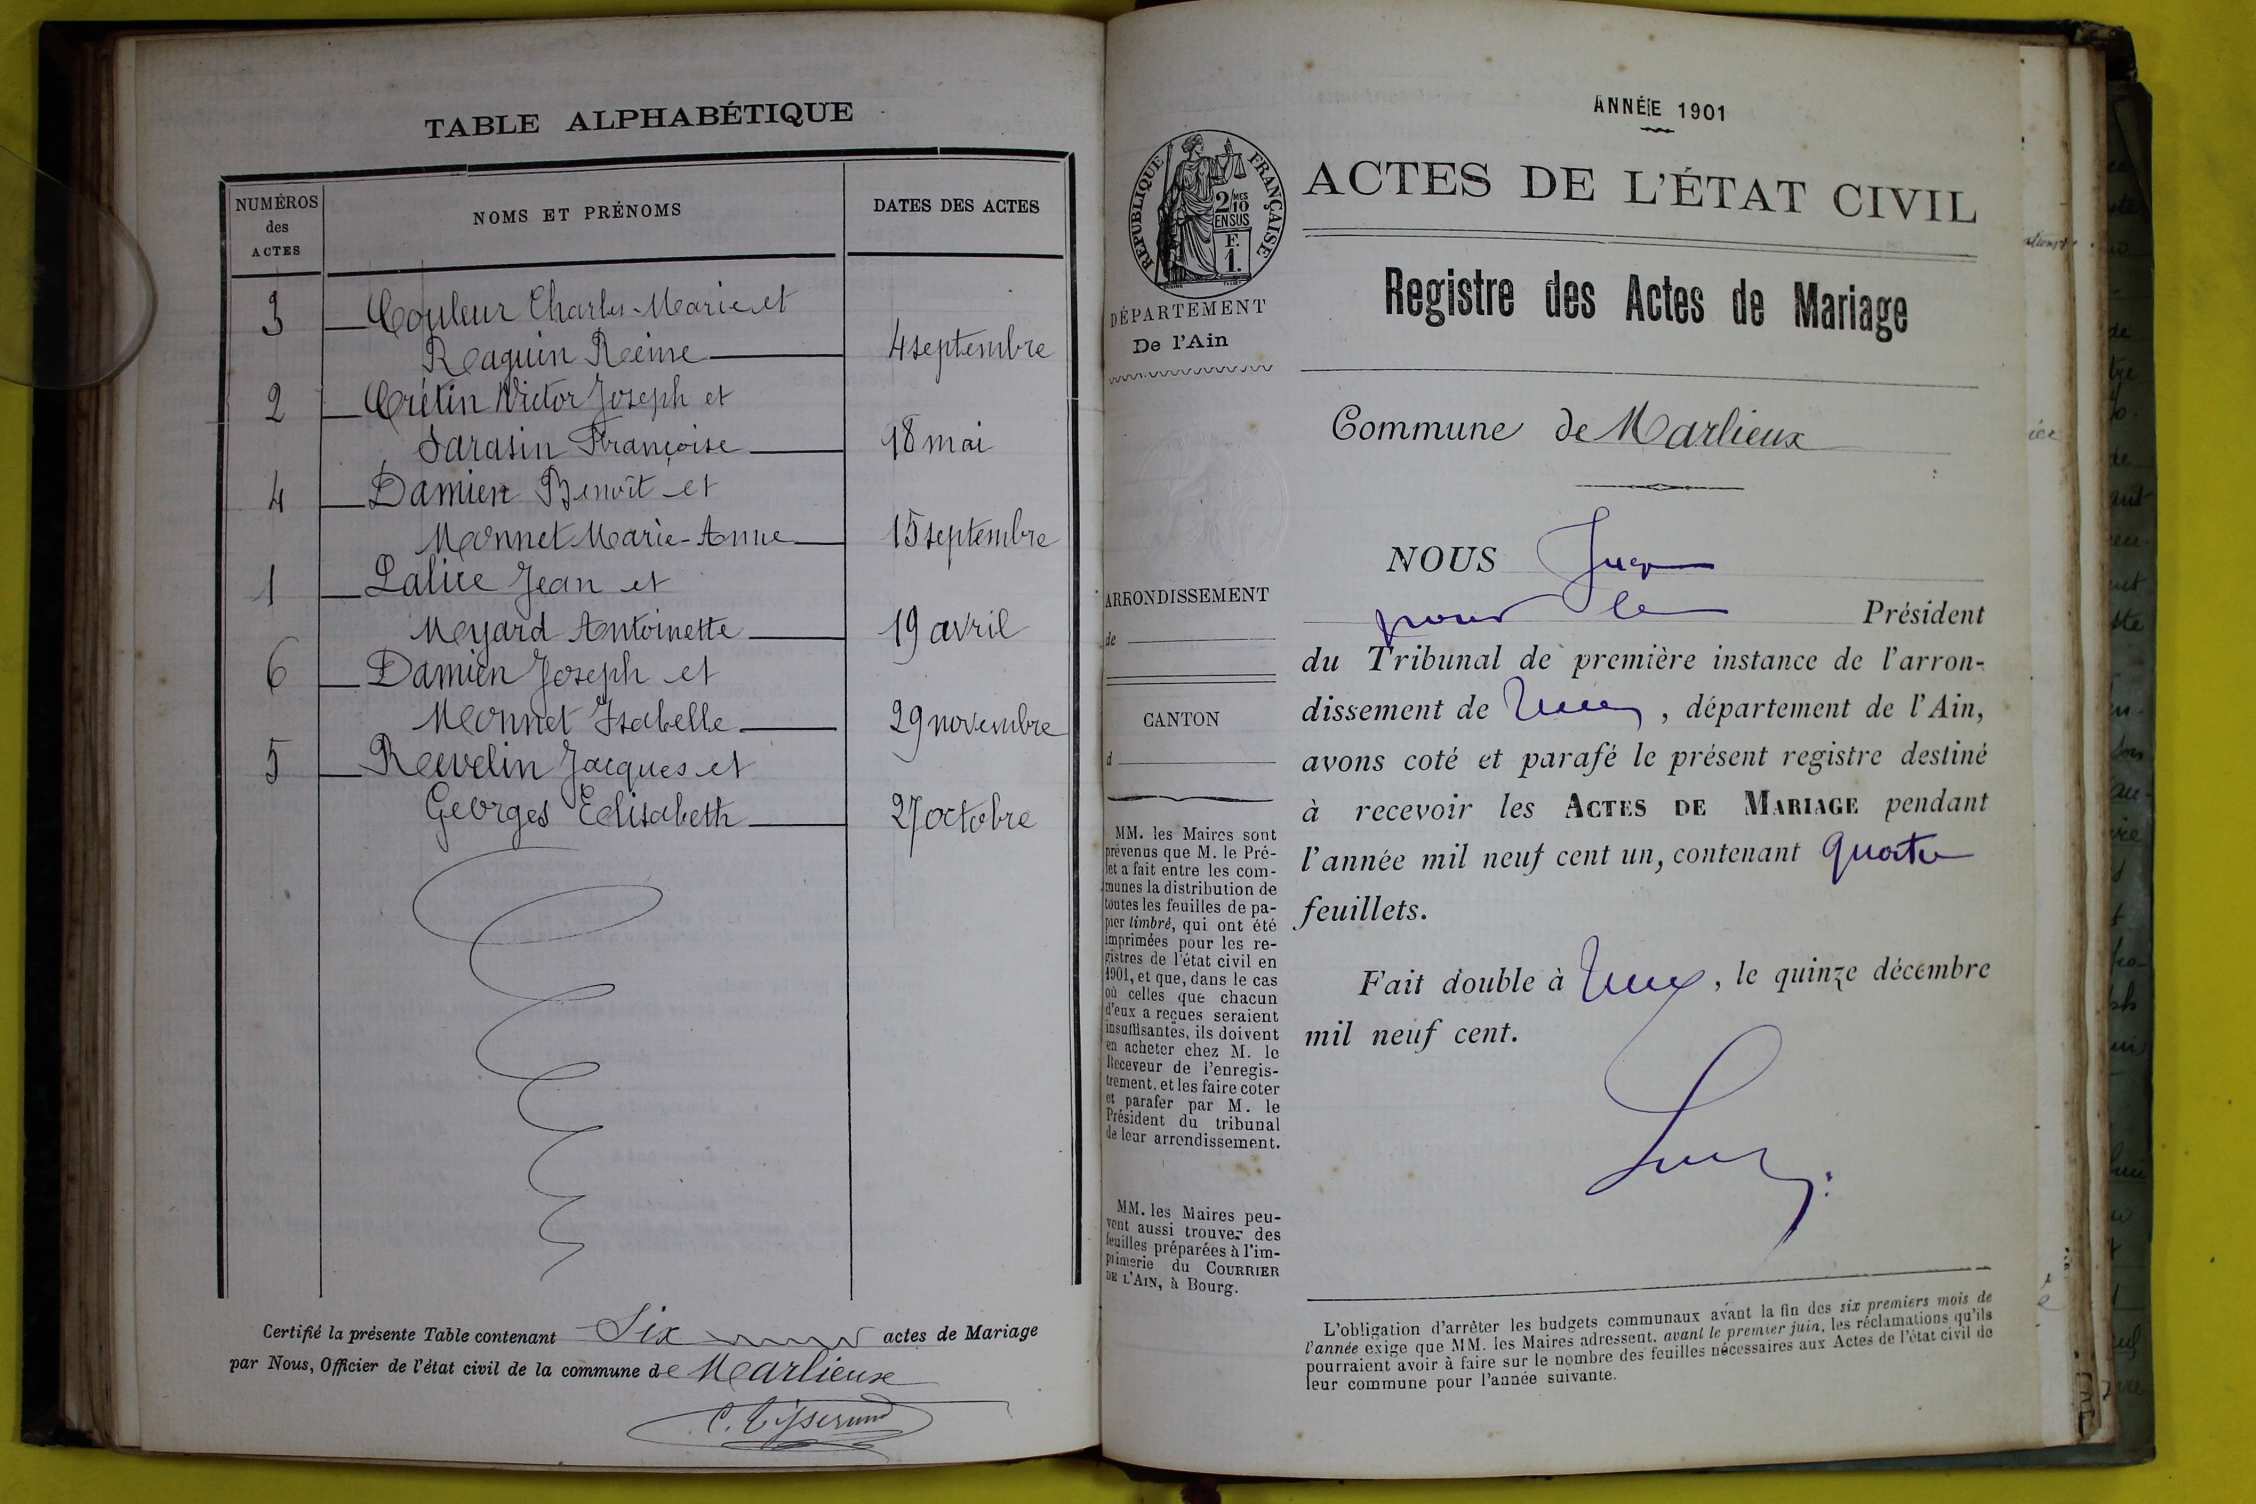 TABLE ALPHABÉTIQUE
NUMÉROS
des
ACTES
NOMS ET PRÉNOMS
DATES DES ACTES
3 Couleur Charles-Marie et
Raquin Reine 4 septembre
2 Crétin Victor Joseph et
Sarasin Françoise 18 mai
4 Damien Benoît et
Monnet Marie-Anne 15 septembre
1 Lalive Jean et
Moyard Antoinette 19 avril
6 Damien Joseph et
Monnet Isabelle 29 novembre
5 Revelin Jacques et
Georges Elisabeth 27 octobre
Certifié la présente Table contenant Six actes de Mariage
par Nous, Officier de l'état civil de la commune de Marlieux
C. Tisserand
ANNÉE 1901
RÉPUBLIQUE FRANÇAISE
2/10 MES
EN SUS
F.
1.
DÉPARTEMENT
De l'Ain
ARRONDISSEMENT
de
CANTON
d
MM. les Maires sont
prévenus que M. le Pré-
fet a fait entre les com-
munes la distribution de
toutes les feuilles de pa-
pier timbré, qui ont été
imprimées pour les re-
gistres de l'état civil en
1901, et que, dans le cas
où celles que chacun
d'eux a reçues seraient
insuffisantes, ils doivent
en acheter chez M. le
Receveur de l'enregis-
trement, et les faire coter
et parafer par M. le
Président du tribunal
de leur arrondissement.
MM. les Maires peu-
vent aussi trouver des
feuilles préparées à l'im-
primerie du COURRIER
DE L'AIN, à Bourg.
ACTES DE L'ÉTAT CIVIL
Registre des Actes de Mariage
Commune de Marlieux
NOUS Juge
pour le Président
du Tribunal de première instance de l'arron-
dissement de , département de l'Ain,
avons coté et parafé le présent registre destiné
à recevoir les ACTES DE MARIAGE pendant
l'année mil neuf cent un, contenant quatre
feuillets.
Fait double à , le quinze décembre
mil neuf cent.
L'obligation d'arrêter les budgets communaux avant la fin des six premiers mois de
l'année exige que MM. les Maires adressent, avant le premier juin, les réclamations qu'ils
pourraient avoir à faire sur le nombre des feuilles nécessaires aux Actes de l'état civil de
leur commune pour l'année suivante.